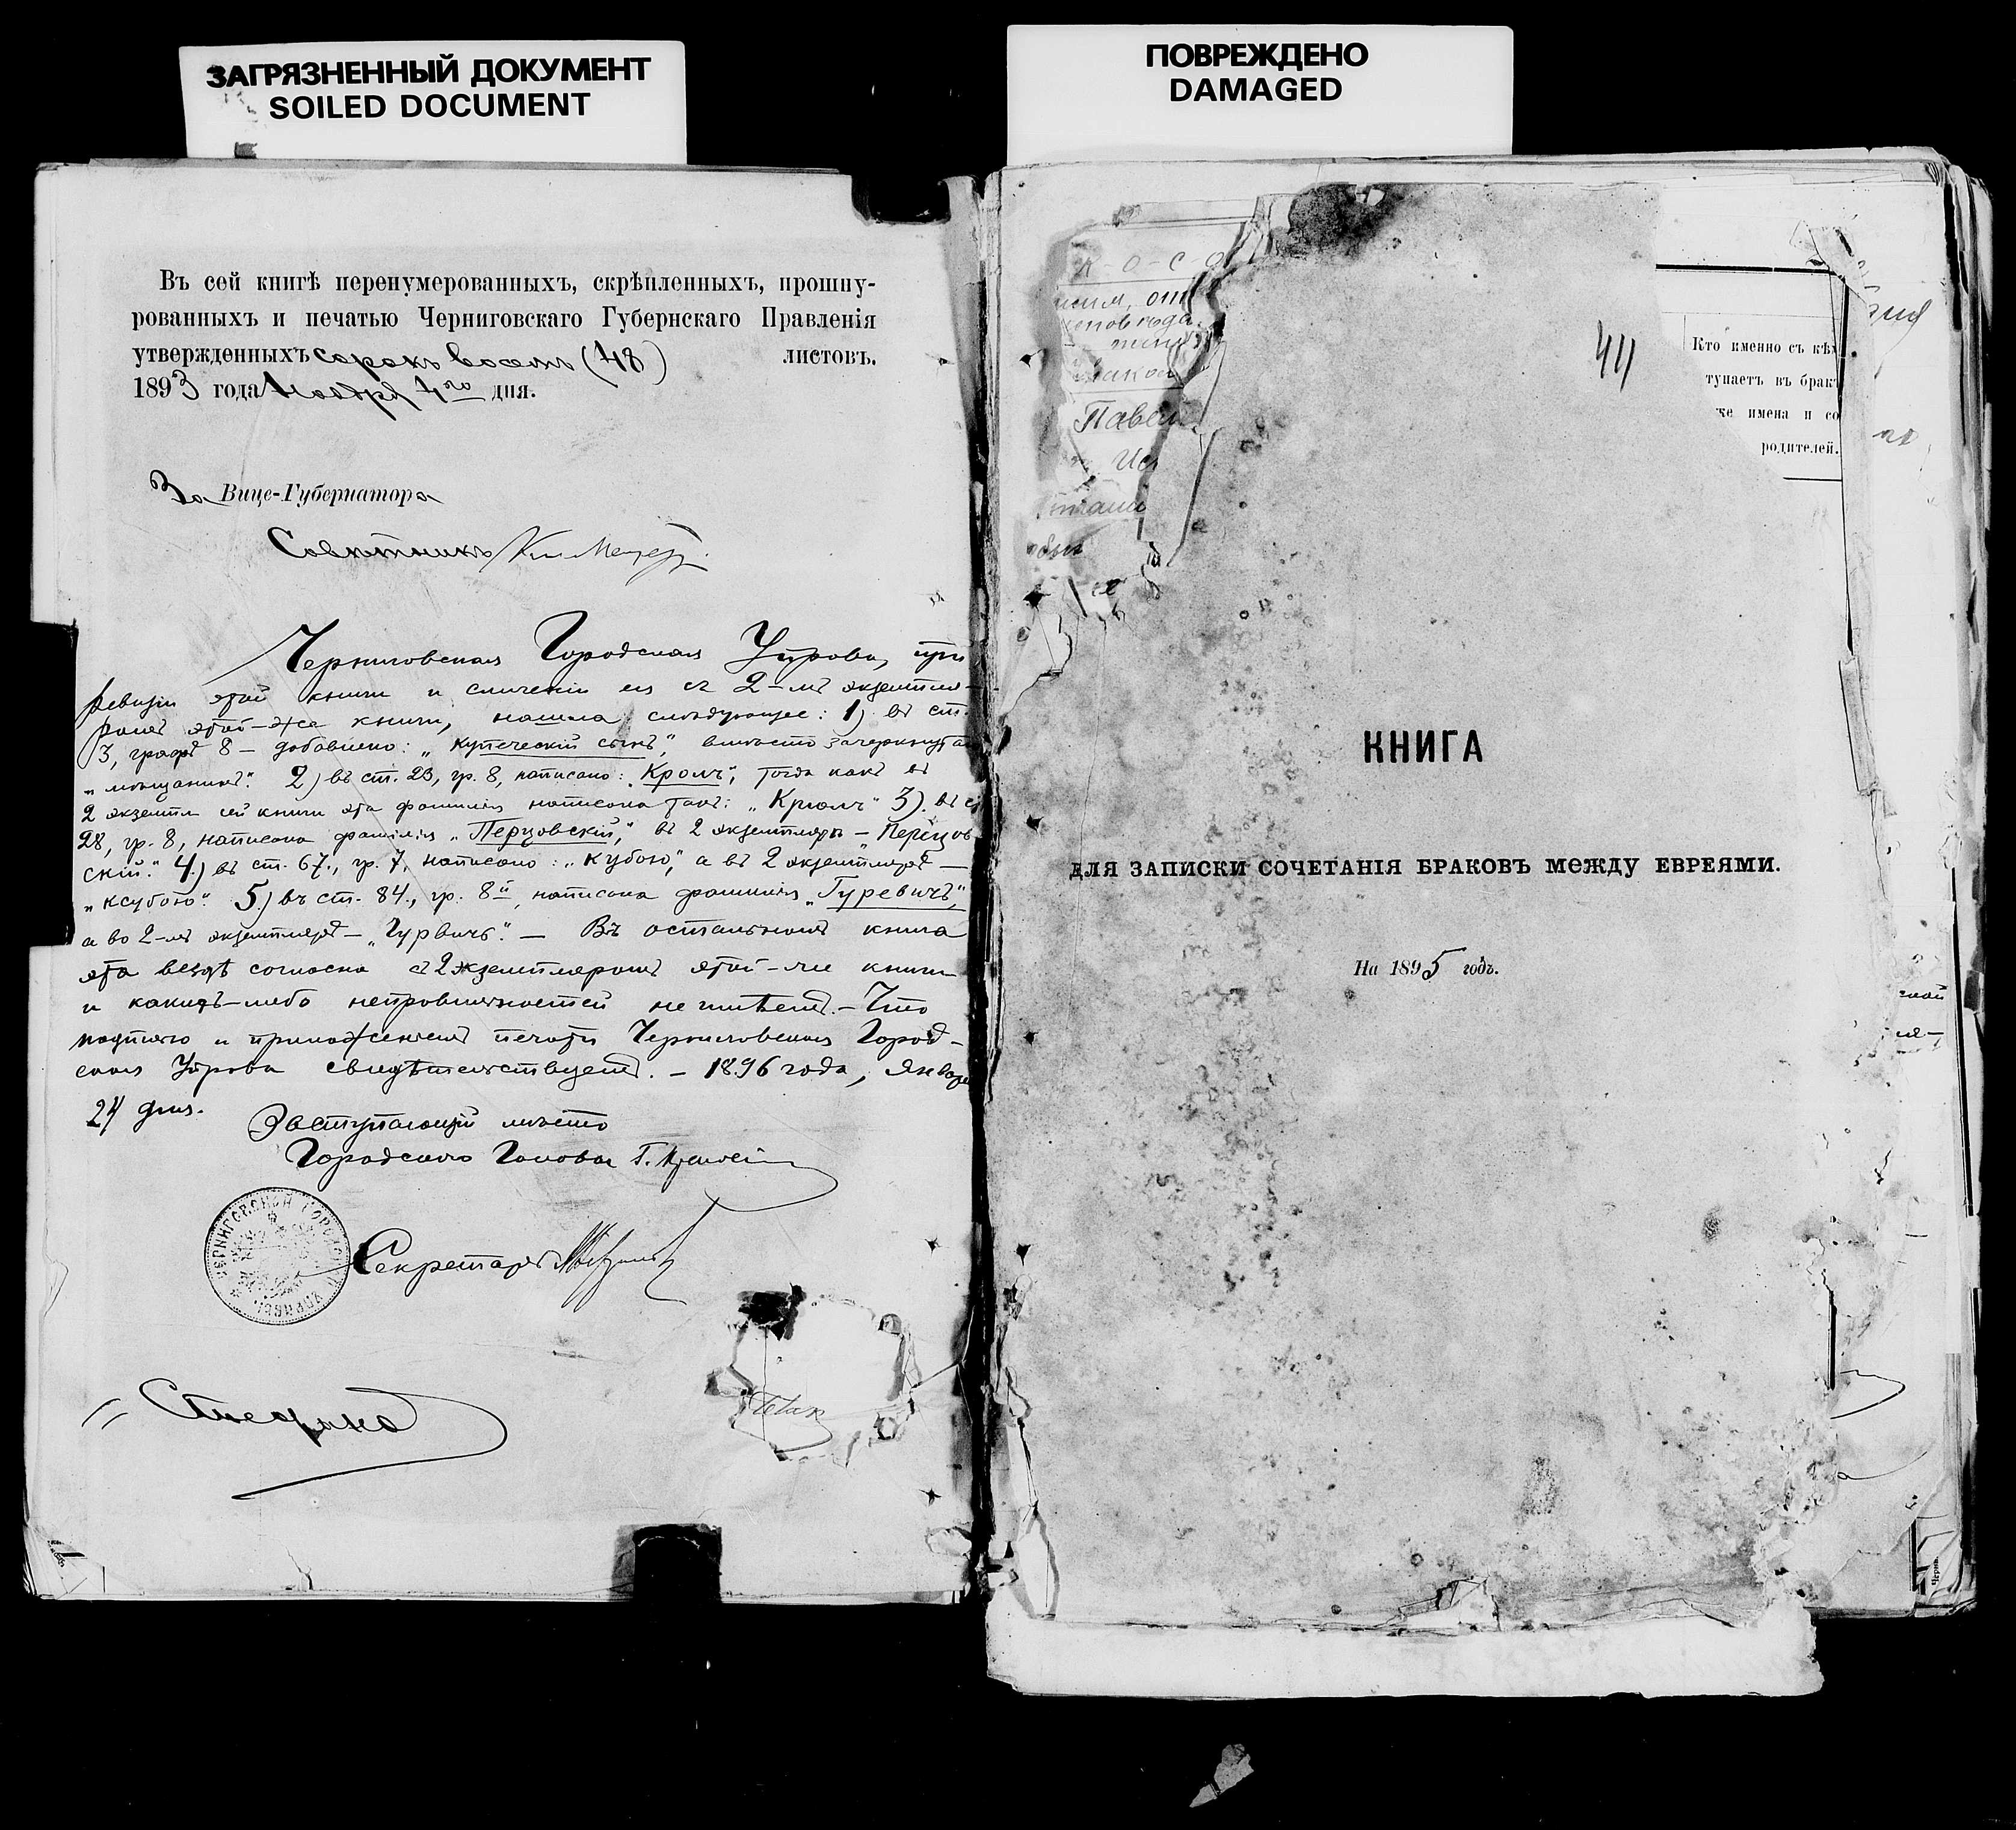 ЗАГРЯЗНЕННЫЙ ДОКУМЕНТ
SOILED DOCUMENT
Въ сей книгѣ перенумерованныхъ, скрѣпленныхъ, прошну-
рованныхъ и печатью Черниговскаго Губернскаго Правленія
утвержденныхъ сорокъ восемь (48) листовъ.
1893 года Ноября 4го дня.
За Вице-Губернатора
Совѣтникъ
Черниговская Городская Управа, при
ревизіи этой книги и сличеніи ея съ 2-мъ экземпля-
ромъ этой-же книги, нашла слѣдующее: 1) въ ст.
3, графѣ 8 – добавлено: „купеческій сынъ", вмѣсто зачеркнутаго
„мѣщанинъ". 2) въ ст. 23, гр. 8, написано: „Кролъ", тогда какъ въ
2 экземпл. сей книги эта фамилія написана такъ: „Крюлъ" 3) въ ст.
28, гр. 8, написана фамилія „Перцовскій", въ 2 экземплярѣ – „Перецов-
скій". 4) въ ст. 67, гр. 7, написано: „кубою", а въ 2 экземплярѣ –
„ксубою". 5) въ ст. 84, гр. 8й, написана фамилія „Гуревичъ",
а во 2-мъ экземплярѣ – „Гурвичъ". – Въ остальномъ книга
эта вездѣ согласна съ 2 экземпляромъ этой-же книги
и какихъ-либо неправильностей не имѣетъ. – Что
подписью и приложеніемъ печати Черниговская Город-
ская Управа свидѣтельствуетъ. – 1896 года, Января
24 дня.
Заступающій мѣсто
Городского Головы Г.
Секретарь
ЧЕРНИГОВСКОЙ ГОРОДСКОЙ УПРАВЫ
ПОВРЕЖДЕНО
DAMAGED
44
Кто именно съ кѣм
тупаетъ въ брак
же имена и со
родителей.
КНИГА
ДЛЯ ЗАПИСКИ СОЧЕТАНІЯ БРАКОВЪ МЕЖДУ ЕВРЕЯМИ.
На 1895 годъ.